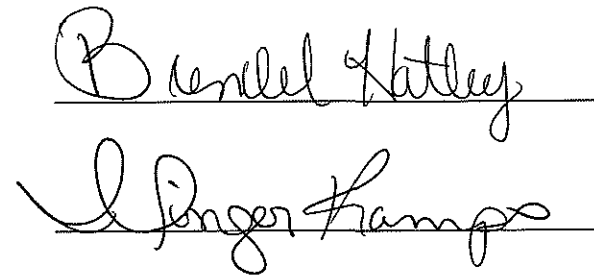 Brendel Hatley
Ginger Kamps